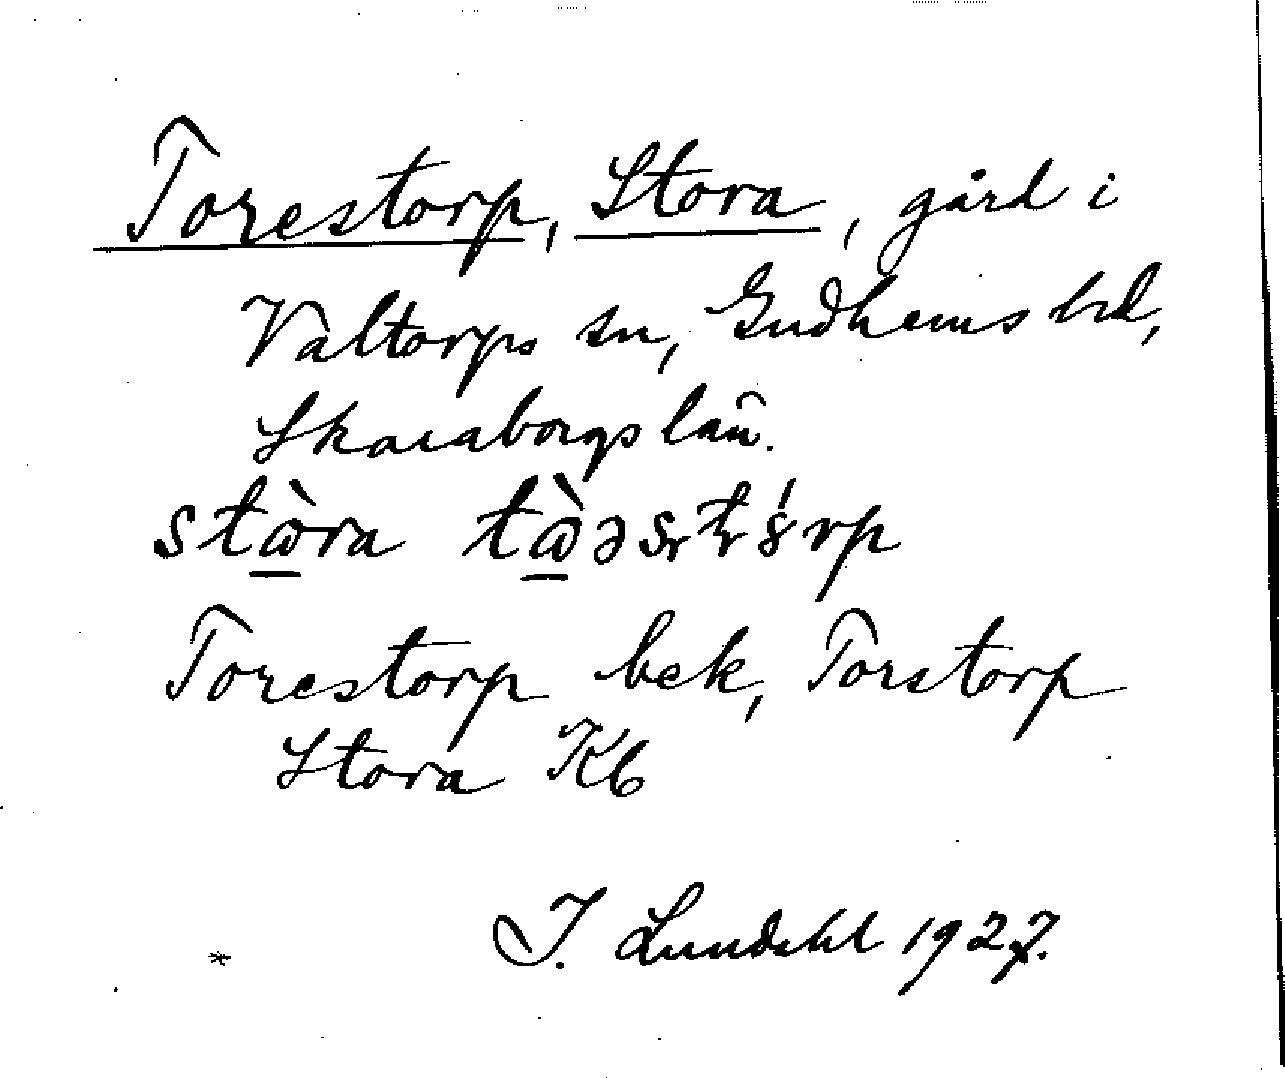 Torestorp, Stora, gård i
Valtorps sn, Gudhems hd,
Skaraborgs län.
stɷ̀ra tɷ̀əsʈȣ́rp
Torestorp bek, Torstorp
Stora Kb
I. Lundahl 1927.
*